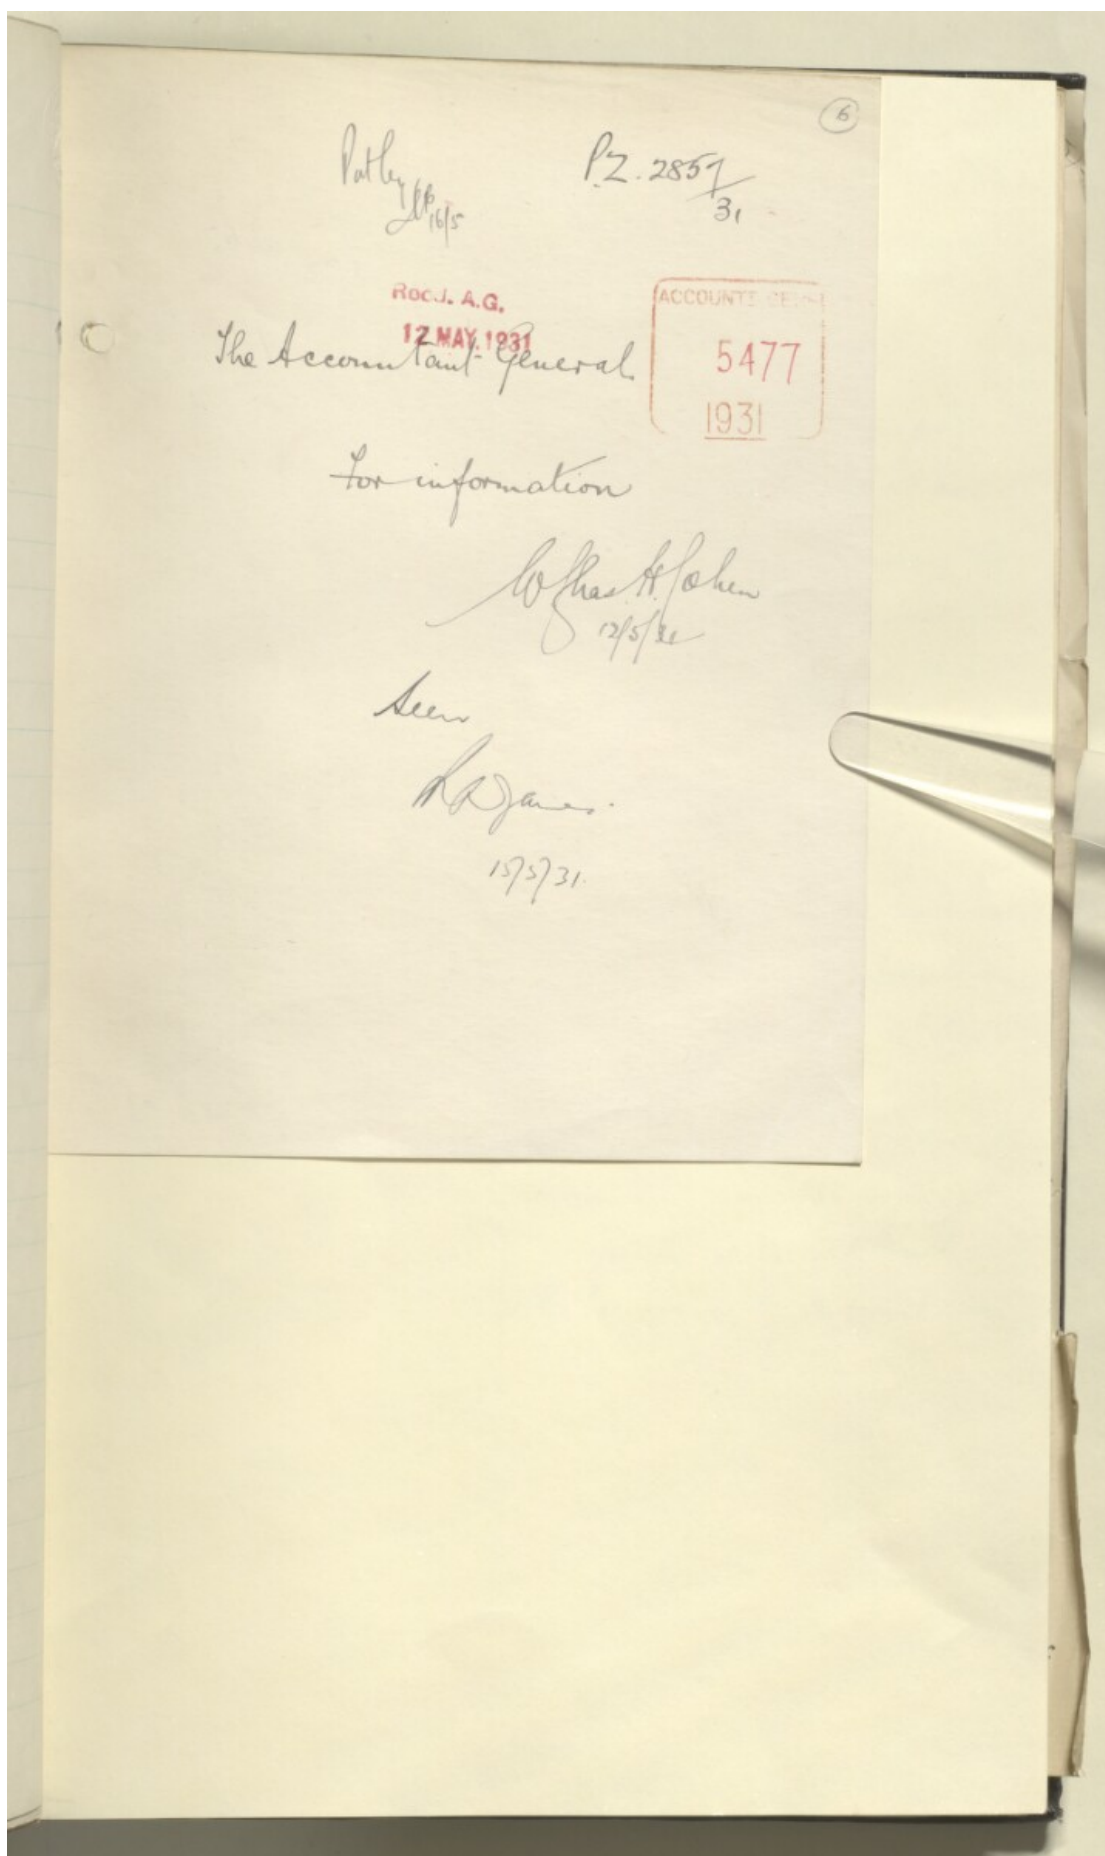 6
P.Z. 2857/31
16/5
Recd. A.G.
12 MAY. 1931
ACCOUNTS
5477
1931
The Accountant-General
For information
Chas. H. Cohen
12/5/31
Seen
15/5/31.